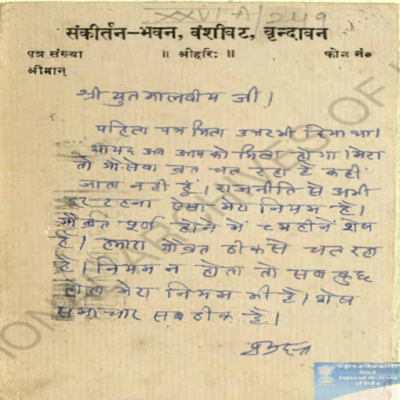 XXVI-A/249
संकीर्तन-भवन, वंशीवट, वृन्दावन
पत्र संख्या ॥ श्रीहरिः ॥ फोन नं०
श्रीमान्
श्री युत मालवीय जी।
पहिला पत्र मिला उत्तर भी दिया था।
शायद अब आप को मिला होगा। मेरा
तो गौ सेवा व्रत चल रहा है कहीं
जाता नहीं हूँ। राजनीति से अभी
दूर रहना ऐसा मेरा नियम है।
गौव्रत पूर्ण होने में महीने शेष
हैं। हमारा गौव्रत ठीक से चल रहा
है। नियम न होता तो सब कुछ
मेरा नियम भी है। शेष
समाचार सब ठीक है।